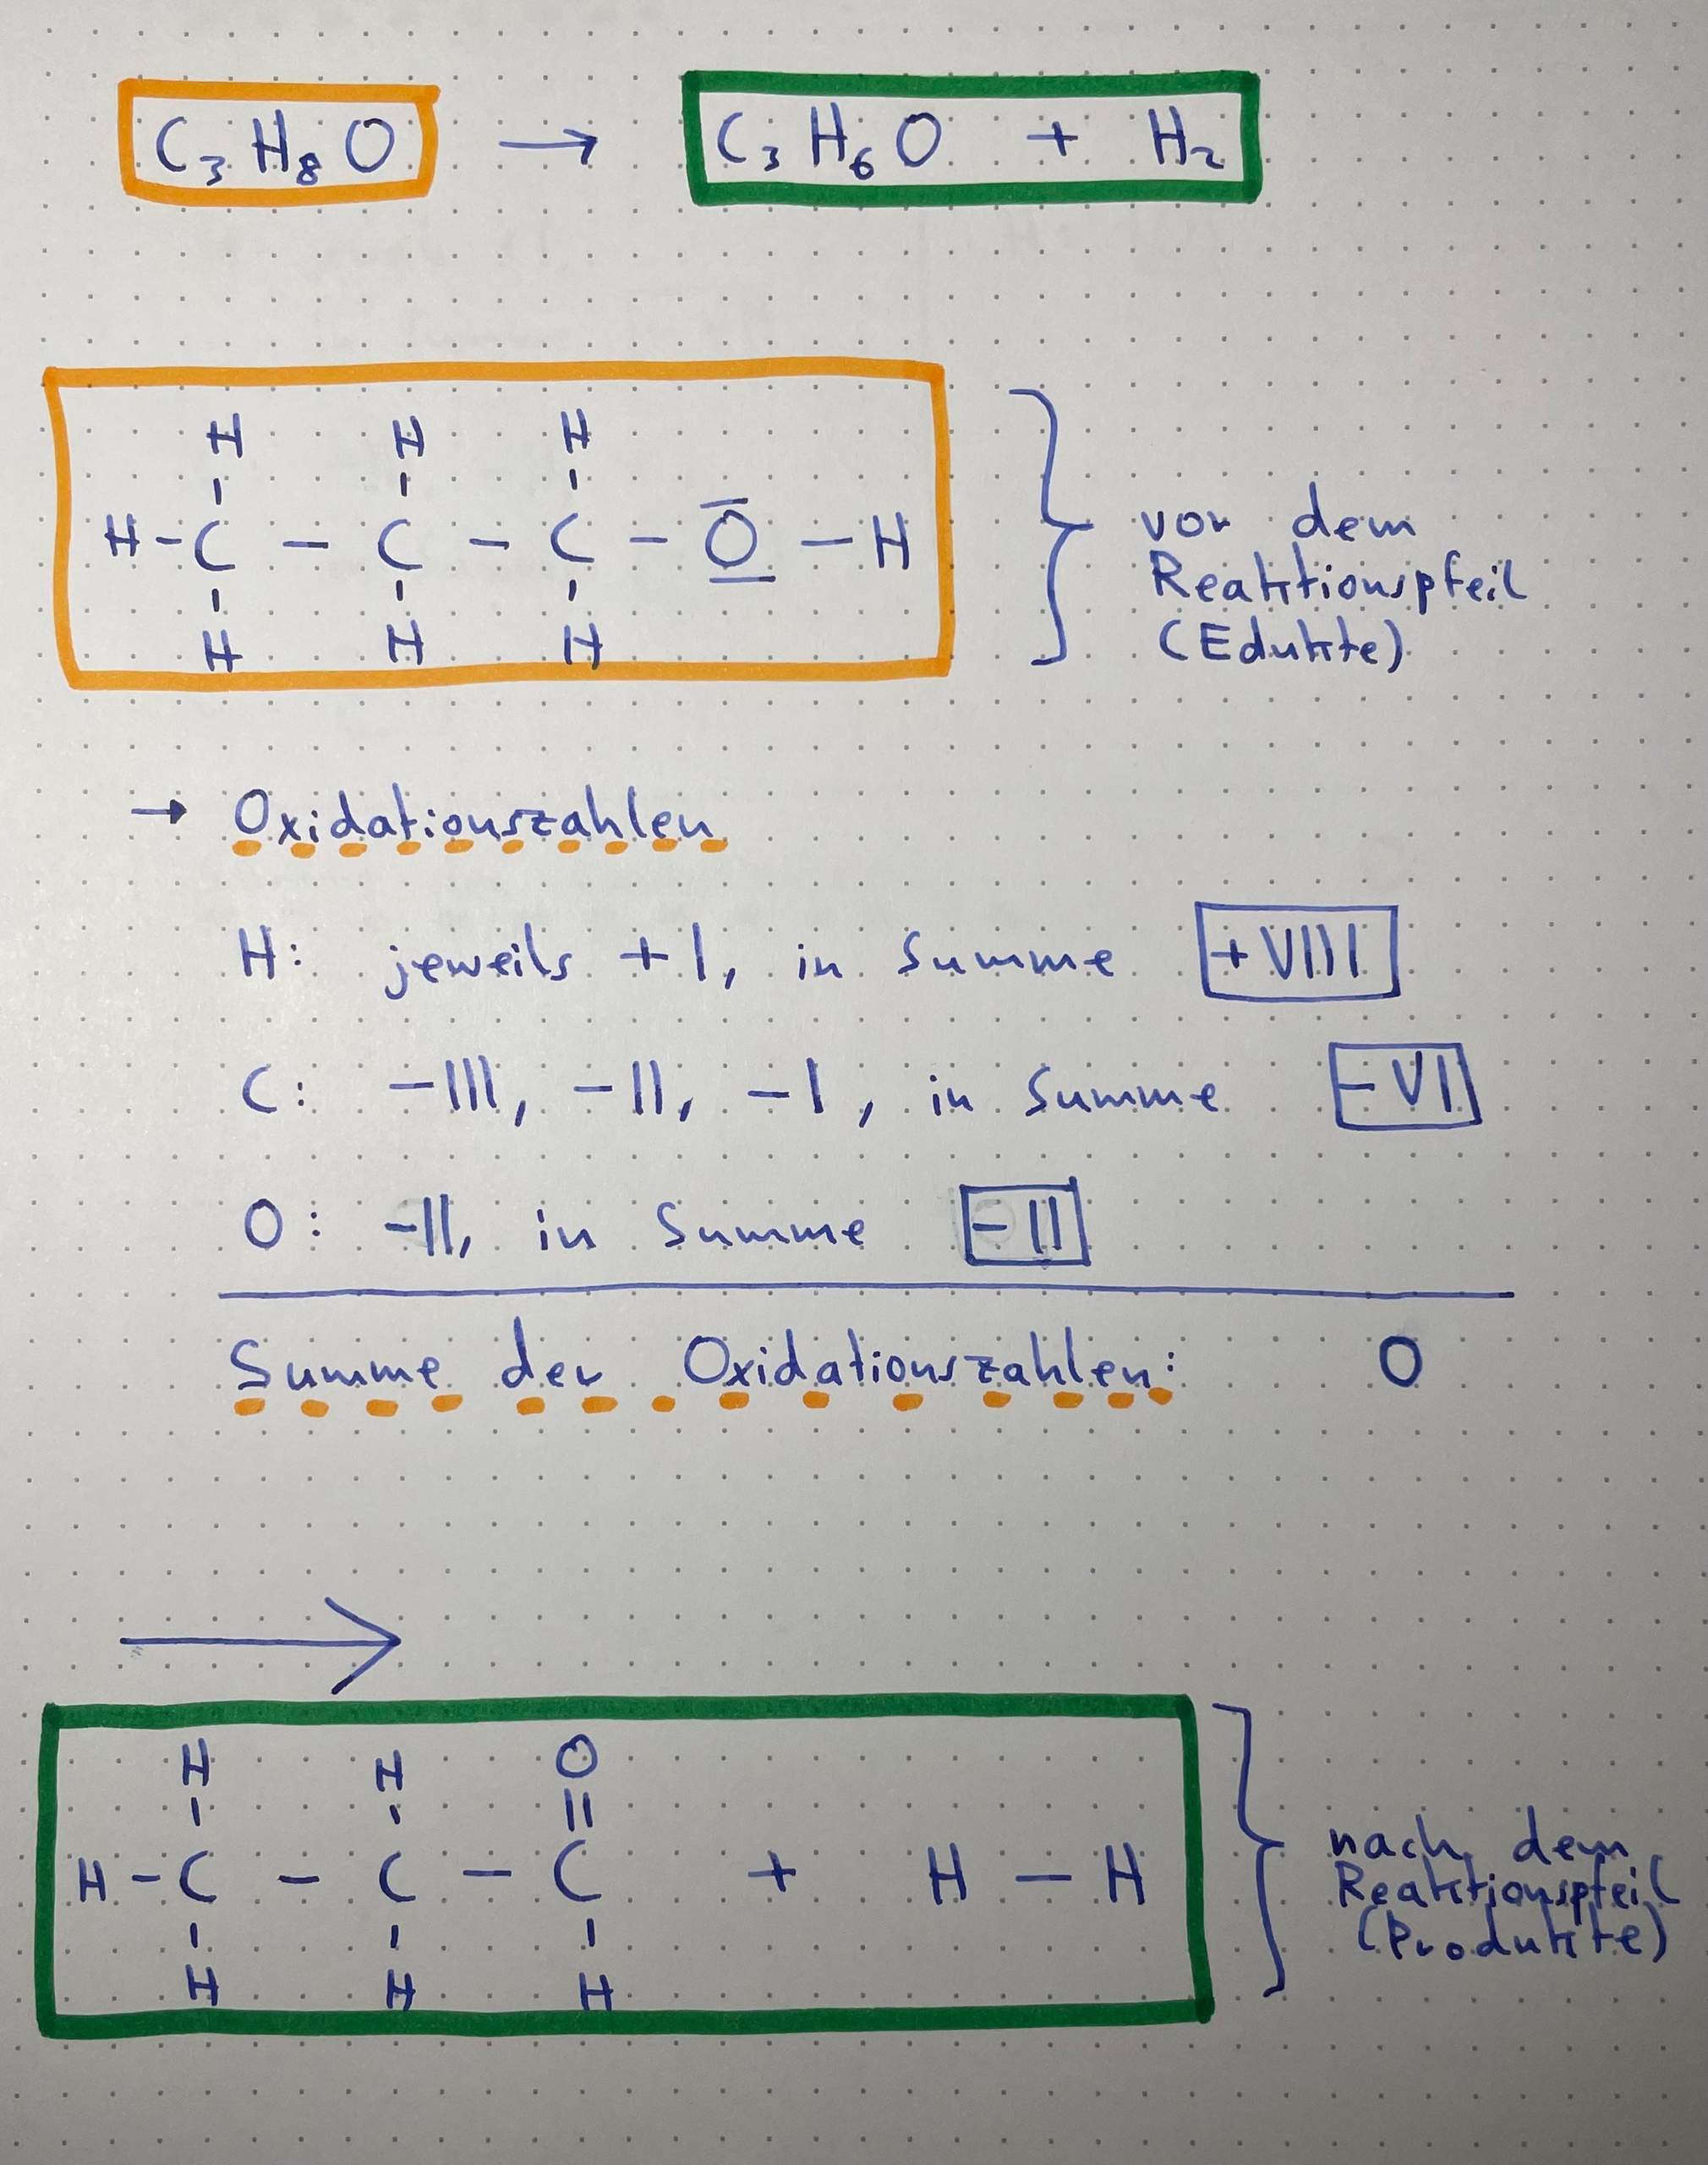 C₃H₈O → C₃H₆O + H₂
H H H
H - C - C - C - O - H
H H H
vor dem
Reaktionspfeil
(Edukte)
→ Oxidationszahlen
H: jeweils +I, in Summe +VIII
C: -III, -II, -I, in Summe -VI
O: -II, in Summe -II
Summe der Oxidationszahlen: 0
H H O
H - C - C - C + H - H
H H H
nach dem
Reaktionspfeil
(Produkte)